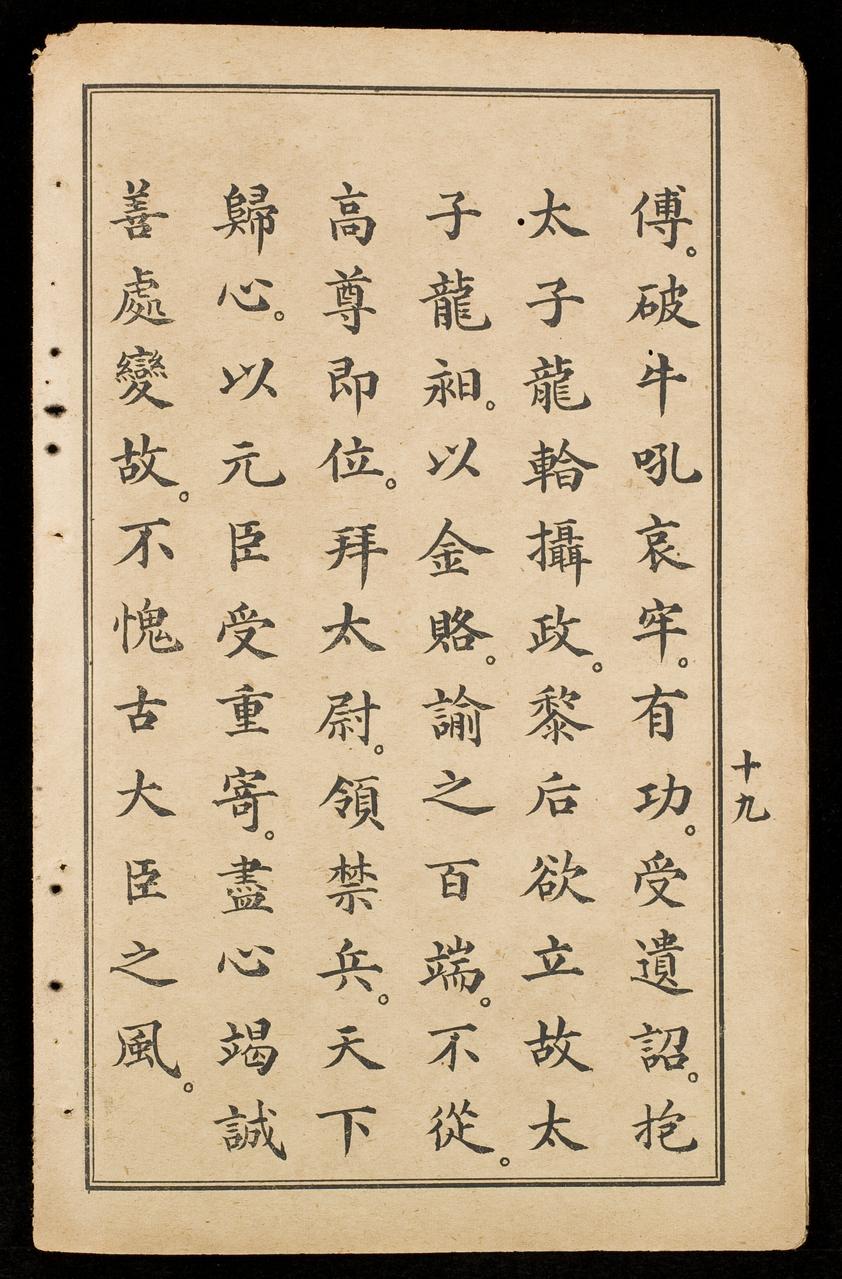 十九
傅。破牛吼哀牢。有功。受遺詔。抱
太子龍攝政。黎后欲立故太
子龍昶。以金賂。諭之百端。不從。
高尊即位。拜太尉。領禁兵。天下
歸心。以元臣受重寄。盡心竭誠
善處變故。不愧古大臣之風。